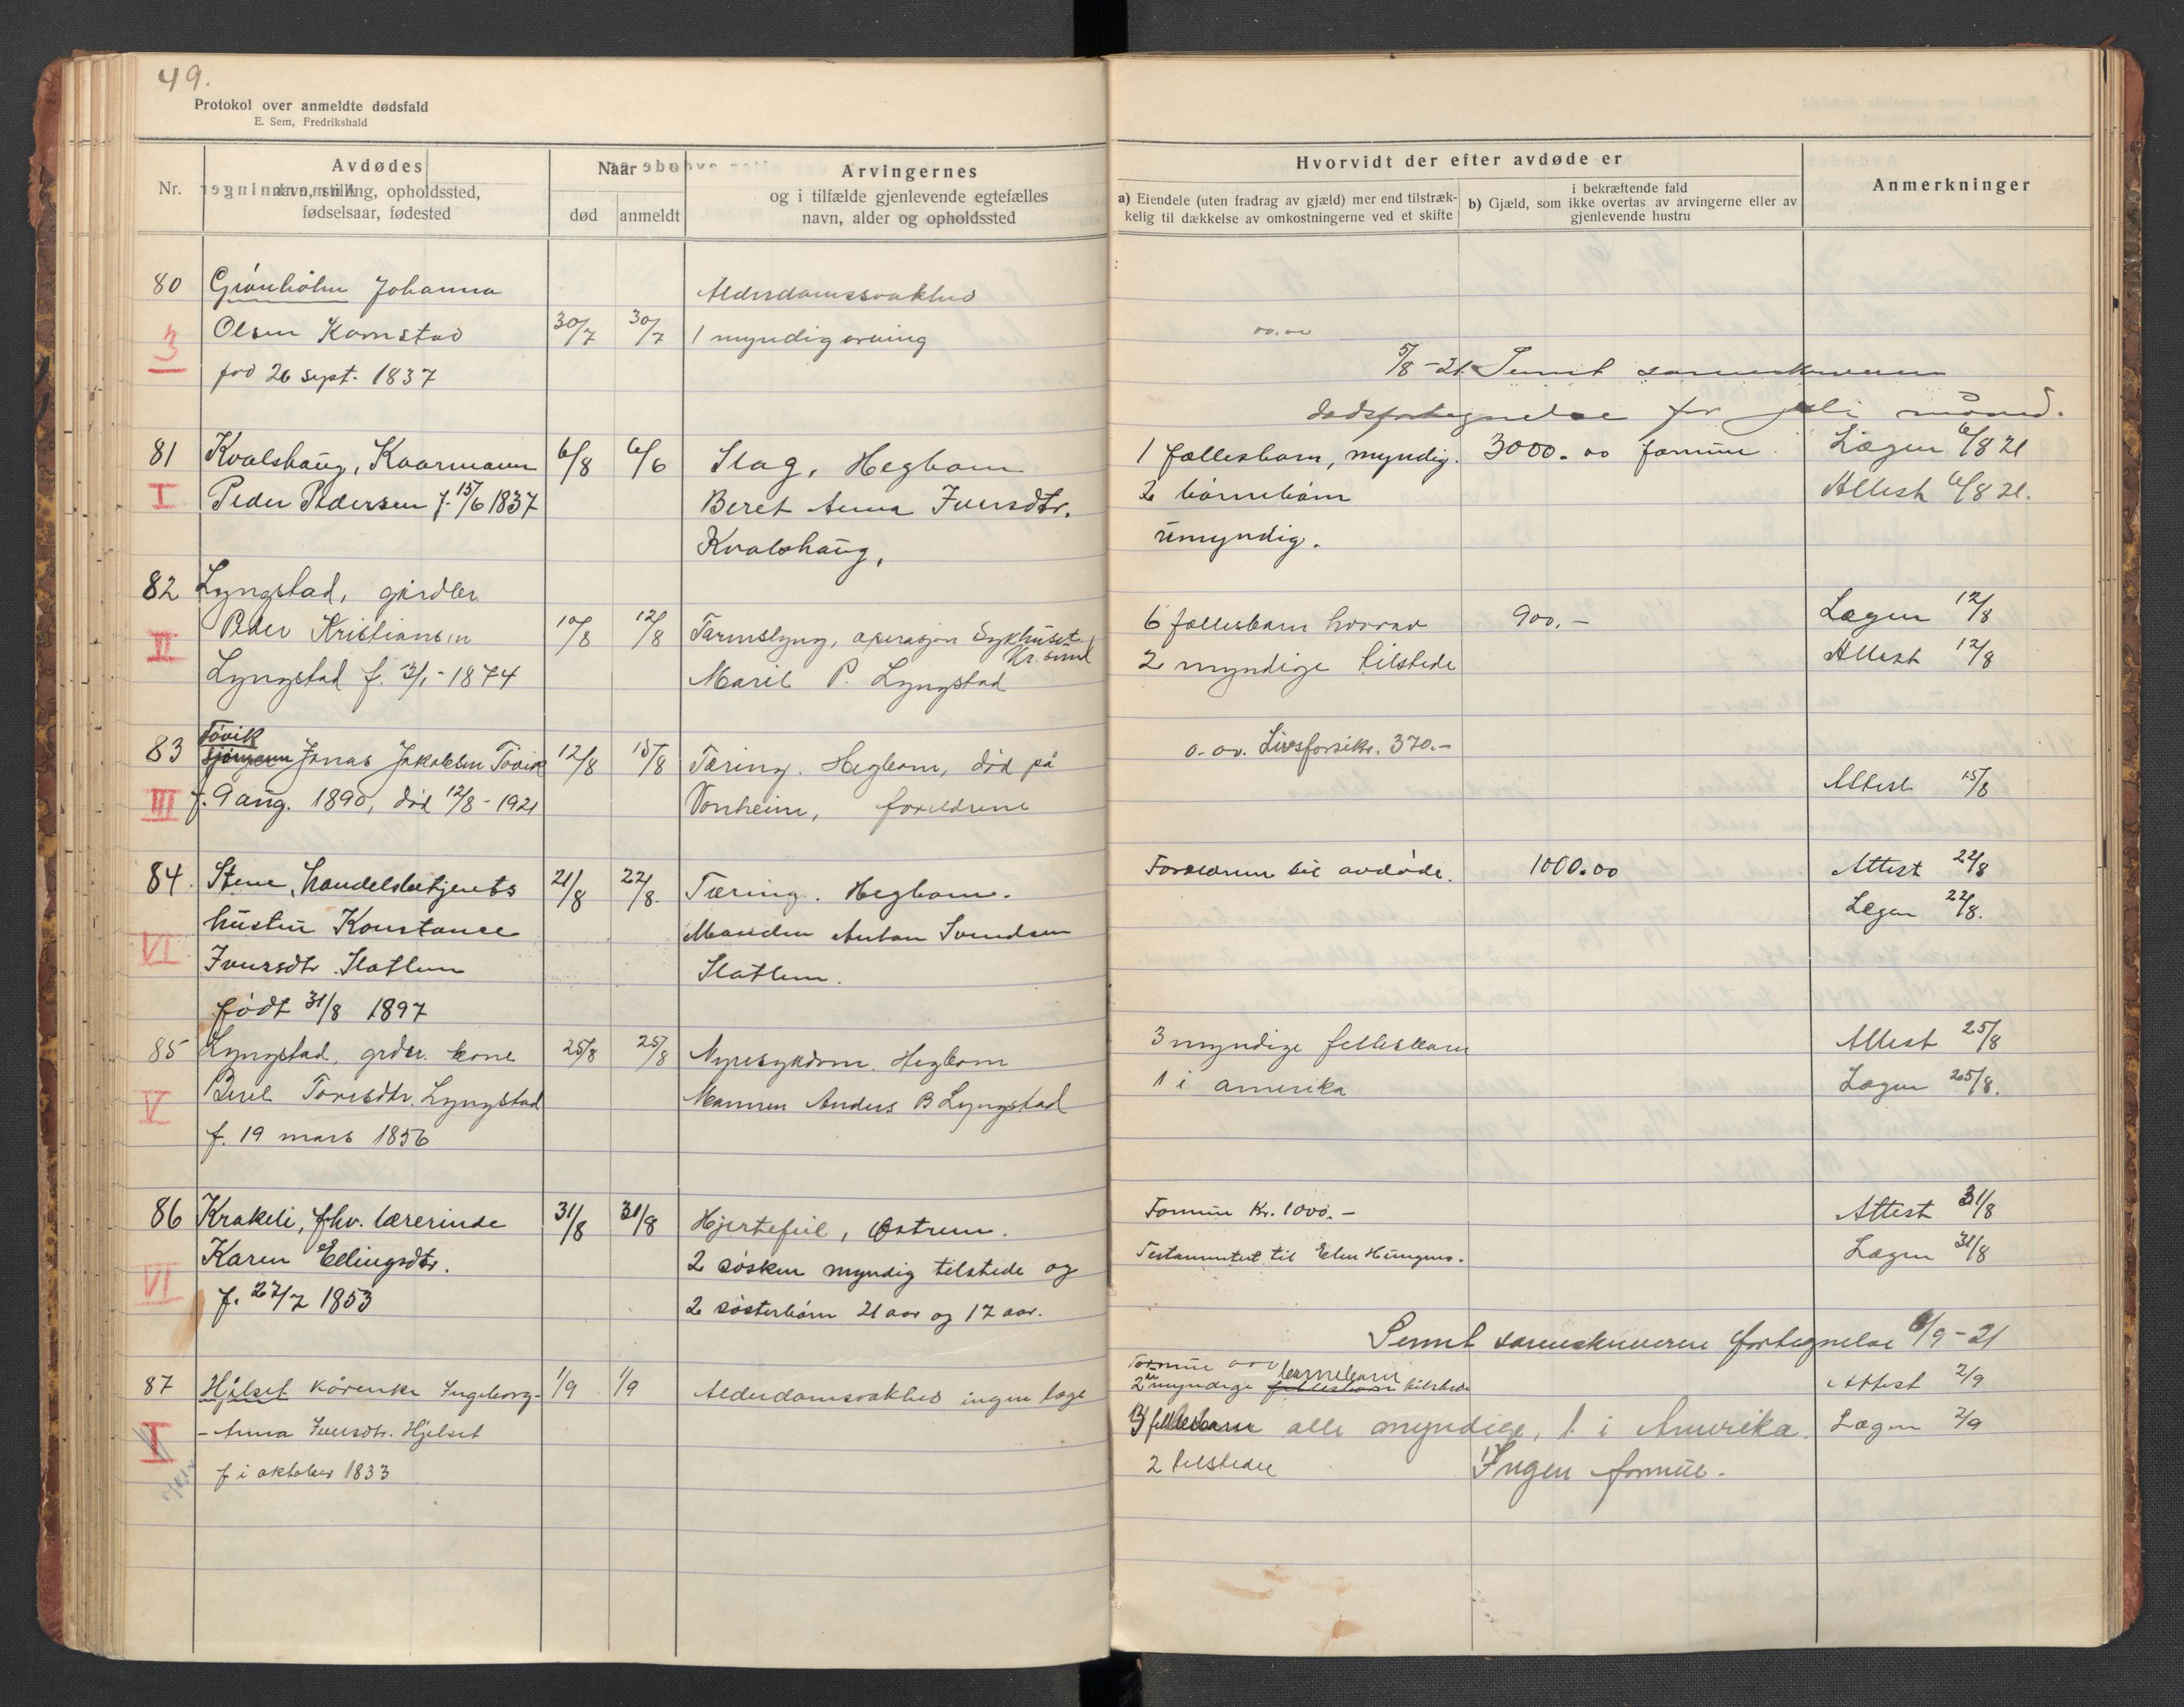 49.
Protokol over anmeldte dødsfald
E. Sem, Fredrikshald
Nr.
Avdødes
navn, stilling, opholdssted,
fødselsaar, fødested
Naar
død
anmeldt
Arvingernes
og i tilfælde gjenlevende egtefælles
navn, alder og opholdssted
Hvorvidt der efter avdøde er
a) Eiendele (uten fradrag av gjæld) mer end tilstræk-
kelig til dækkelse av omkostningerne ved et skifte
i bekræftende fald
b) Gjæld, som ikke overtas av arvingerne eller av
gjenlevende hustru
Anmerkninger
80 Grønholm Johanna Alderdomssvakhed
3 Olsen Kornstad 30/7 30/7 1 myndig arving oo.oo
fød 26 sept. 1837
5/8-21 Sennt sorenskriveren
dødsfortegnelse for juli måned.
81 Kvalshaug, Kaarmann 6/8 6/6 Slag, Hegbom 1 fællesbarn, myndig. 3000.00 formue. Lægen 6/8 21
I Peder Pedersen f. 15/6 1837 Beret Anna Iversdtr. 2 børnebørn Attest 6/8 21.
Kvalshaug, umyndig.
82 Lyngstad, gårdbr.
II Peder Kristiansen 10/8 12/8 Tarmslyng, operasjon Sykhuset 6 fællesbarn hvorav 900.- Lægen 12/8
Kr.sund
Lyngstad f. 3/1-1874 Marit P. Lyngstad 2 myndige tilstede Attest 12/8
Tøvik
83 sjømann Jonas Jakobsen Tøvik 12/8 15/8 Tæring. Hegbom, død på o.ov. Livsforsikr. 370.-
III f. 9 aug. 1890, død 12/8-1921 Vonheim, foreldrene Attest 15/8
84. Stene, handelsbetjents 21/8 22/8. Tæring. Hegbom. Foreldrene til avdøde. 1000.00 Attest 22/8
hustru Konstance Manden Anton Svendsen Lægen 22/8.
VI Iversdtr. Slatlem Slatlem.
født 31/8 1897
85 Lyngstad, grdbr. kone 25/8 25/8 Nyresykdom. Hegbom 3 myndige fellesbarn Attest 25/8
V Beret Toresdtr. Lyngstad Mannen Anders B Lyngstad 1 i amerika Lægen 25/8.
f. 19 mars 1856
86 Krakeli, fhv. lærerinde 31/8 31/8 Hjertefeil, Østrem. Formue Kr. 1000.- Attest 31/8
Karen Ellingsdtr. 2 søsken myndig tilstede og Testamentert til Elen Hungnes. Lægen 31/8
VI f. 27/7 1853 2 søsterbørn 21 aar og 17 aar.
Sennt sorenskriveren fortegnelse 6/9-21
Formue barnebarn
87 Hjelset kårenke Ingeborg- 1/9 1/9 Alderdomsvakhed ingen læge 2 myndige fellesbarn tilstede Attest 2/9
I - Anna Iversdtr. Hjelset 3 fellesbarn alle myndige, 1 i Amerika. Lægen 2/9
f i oktober 1833 2 tilstede Ingen formue.